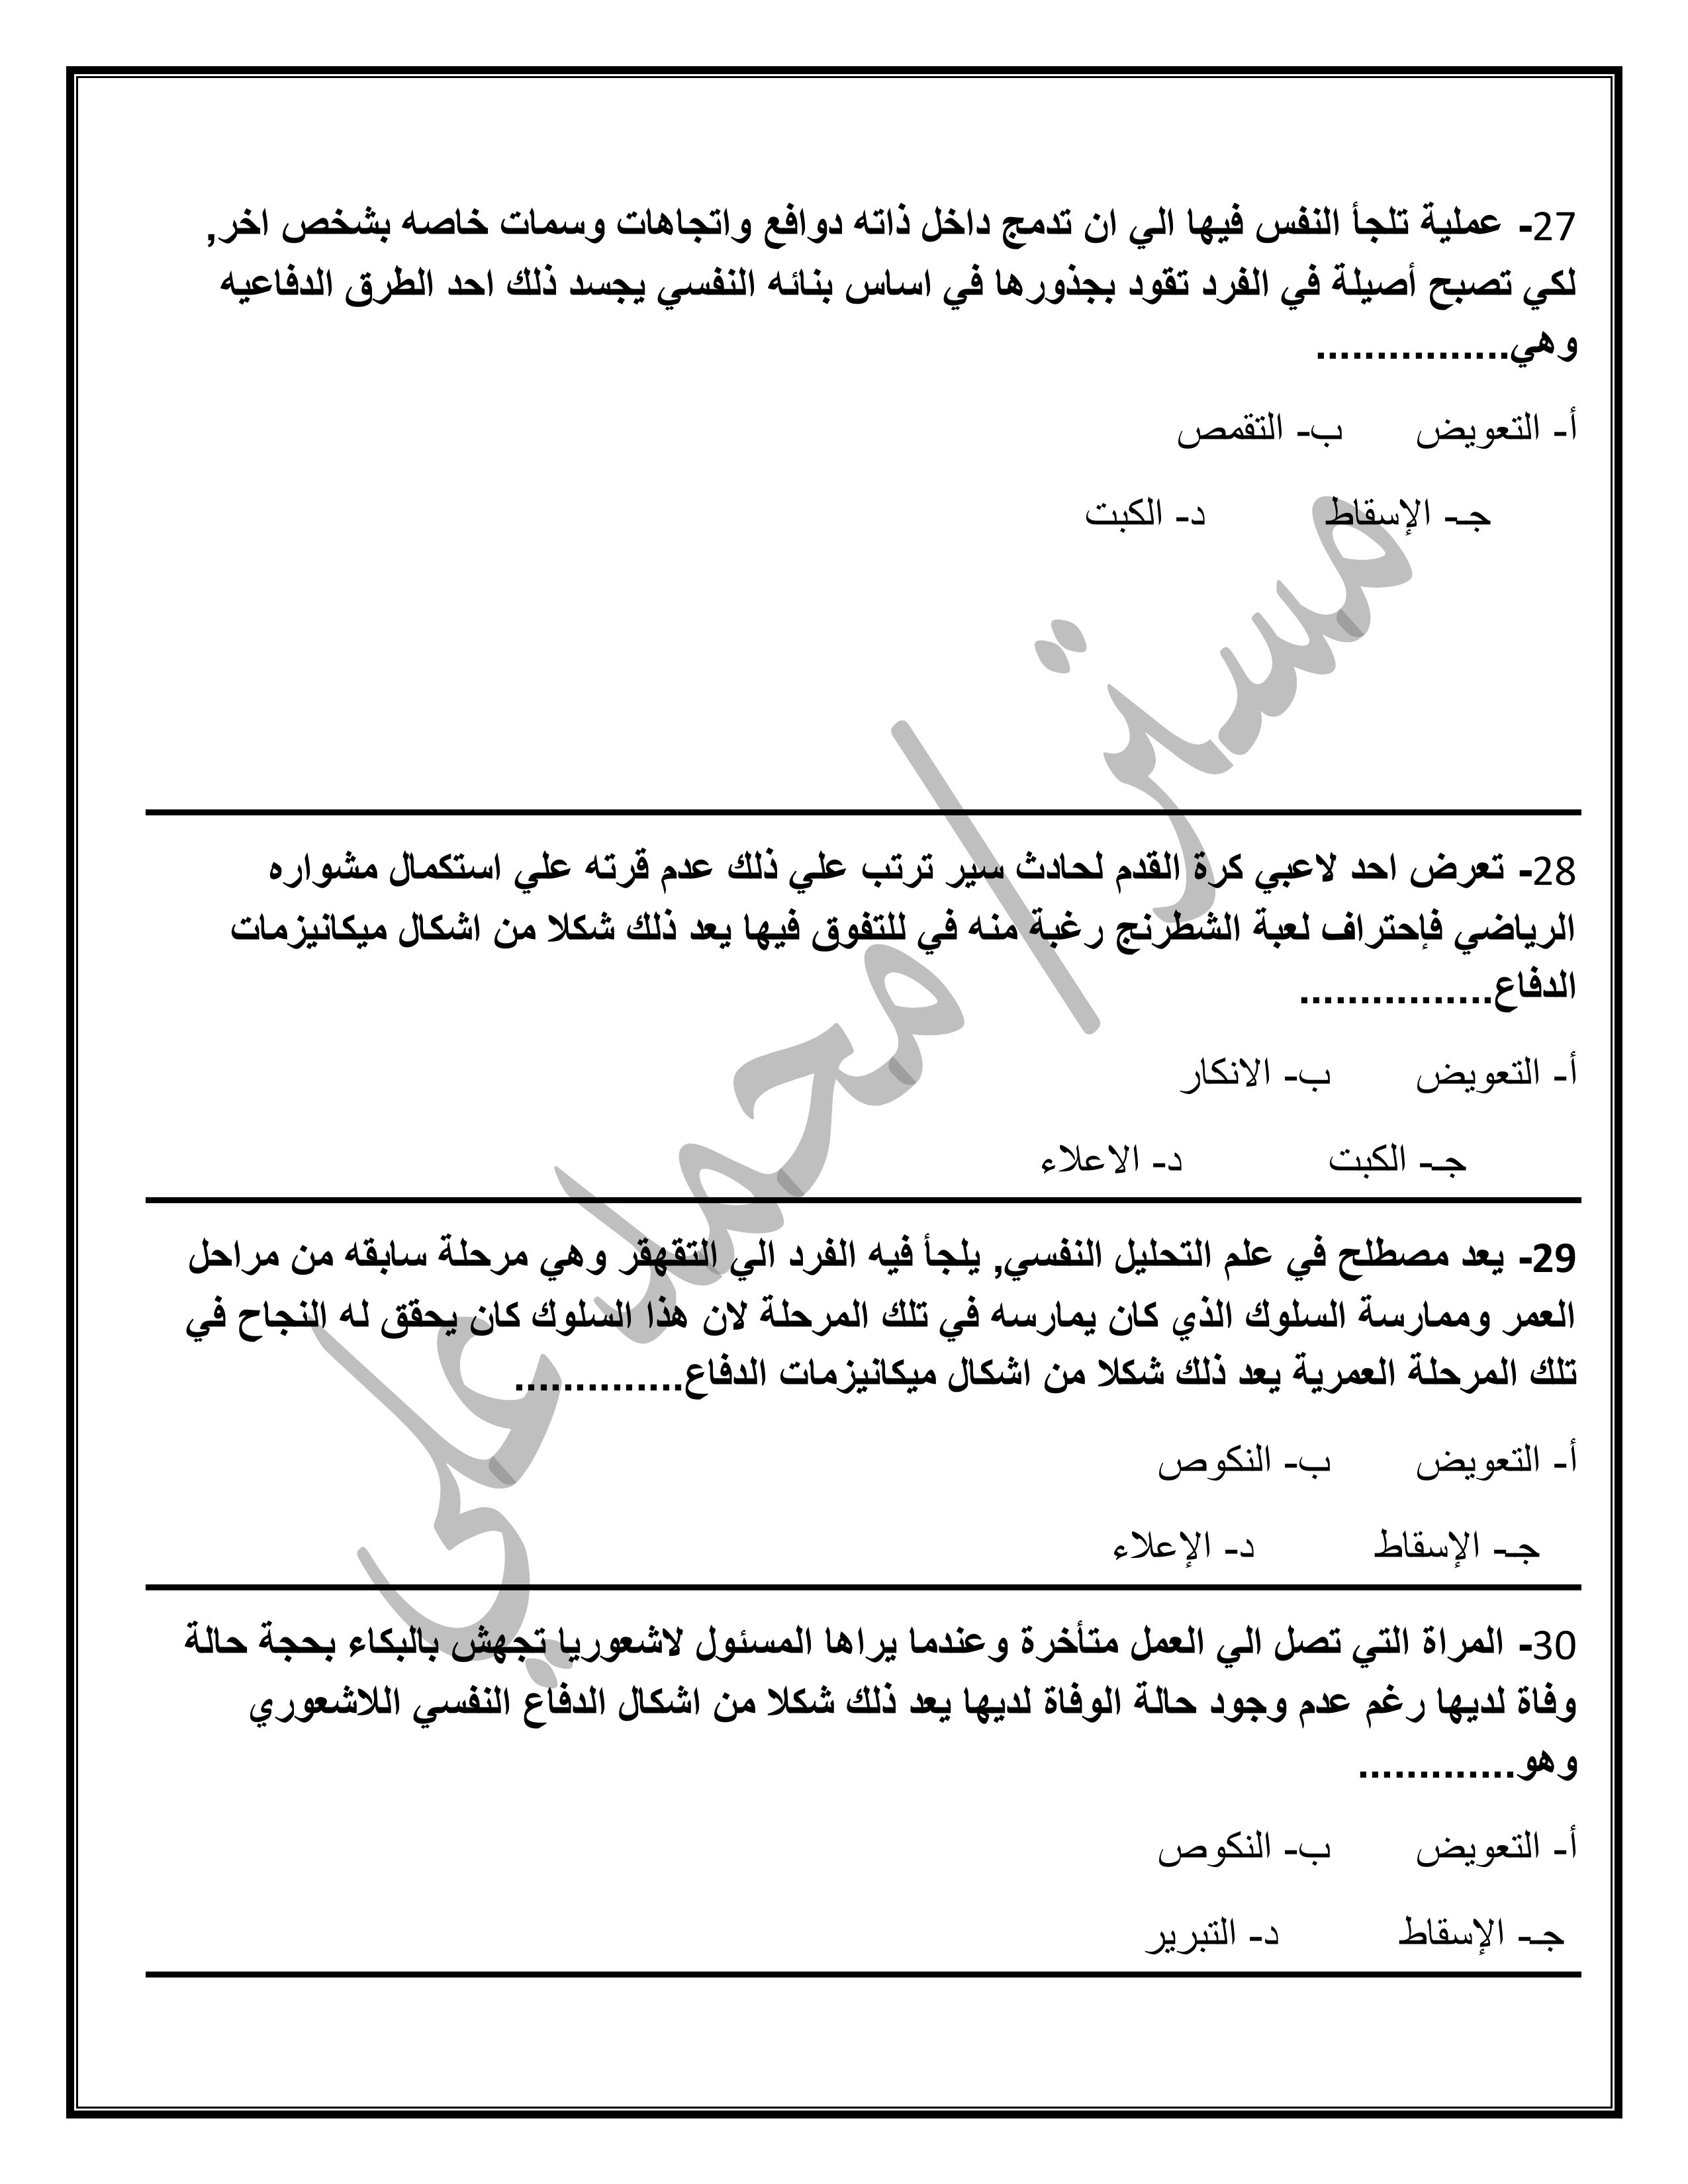 27- عملية تلجأ النفس فيها الي ان تدمج داخل ذاته دوافع واتجاهات وسمات خاصه بشخص اخر,
لكي تصبح أصيلة في الفرد تقود بجذورها في اساس بنائه النفسي يجسد ذلك احد الطرق الدفاعيه
وهي................
أ- التعويض ب- التقمص
جـ- الإسقاط د- الكبت
28- تعرض احد لاعبي كرة القدم لحادث سير ترتب علي ذلك عدم قرته علي استكمال مشواره
الرياضي فإحتراف لعبة الشطرنج رغبة منه في للتفوق فيها يعد ذلك شكلا من اشكال ميكانيزمات
الدفاع................
أ- التعويض ب- الانكار
جـ- الكبت د- الاعلاء
29- يعد مصطلح في علم التحليل النفسي, يلجأ فيه الفرد الي التقهقر وهي مرحلة سابقه من مراحل
العمر وممارسة السلوك الذي كان يمارسه في تلك المرحلة لان هذا السلوك كان يحقق له النجاح في
تلك المرحلة العمرية يعد ذلك شكلا من اشكال ميكانيزمات الدفاع..............
أ- التعويض ب- النكوص
جـ- الإسقاط د- الإعلاء
30- المراة التي تصل الي العمل متأخرة وعندما يراها المسئول لاشعوريا تجهش بالبكاء بحجة حالة
وفاة لديها رغم عدم وجود حالة الوفاة لديها يعد ذلك شكلا من اشكال الدفاع النفسي اللاشعوري
وهو.............
أ- التعويض ب- النكوص
جـ- الإسقاط د- التبرير
مستر/محمد علي